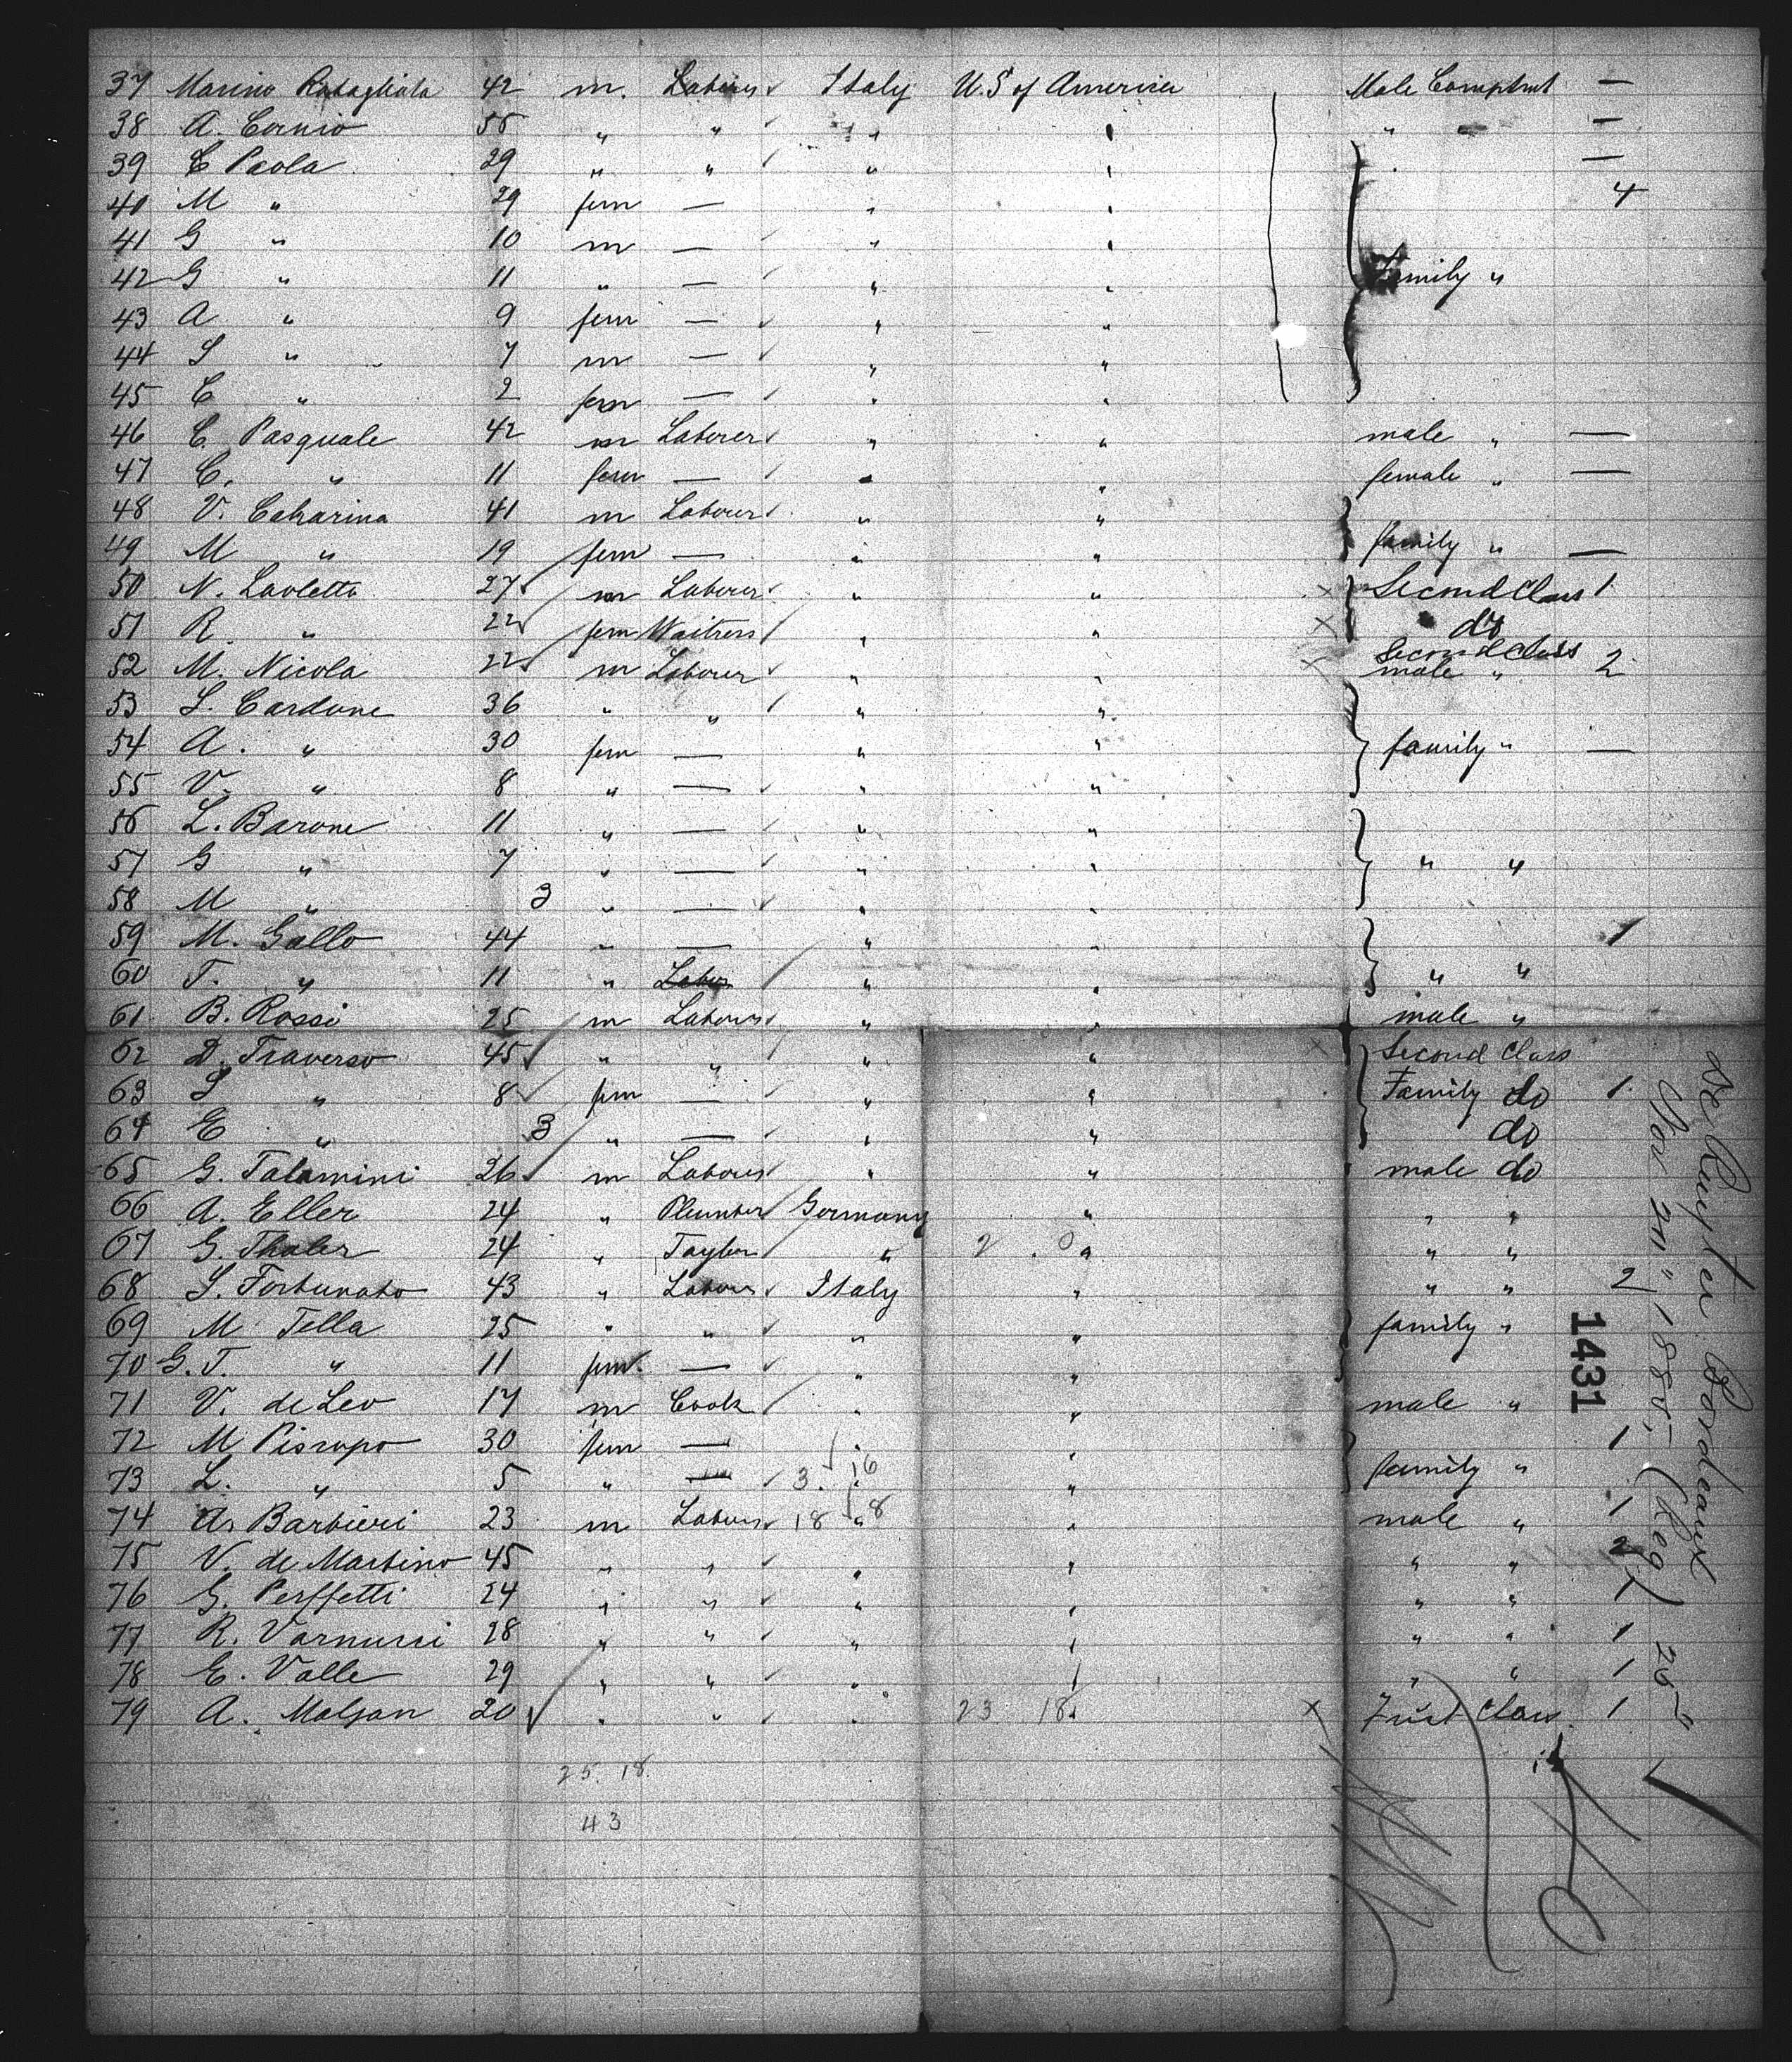 37 Marino Rabagliata 42 m. Laborer Italy U.S of America Male Comptmt —
38 A. Cornio 55 " " " " " —
39 C Paola 29 " " " " —
40 M " 29 fem — " " 4
41 G " 10 m — " "
42 G " 11 " — " " Family "
43 A " 9 fem — " "
44 S " 7 m — " "
45 C " 2 fem — " "
46 C. Pasquale 42 m Laborer " " male " —
47 C. " 11 fem — " " female " —
48 V. Catarina 41 m Laborer " "
49 M " 19 fem — " " family " —
50 N. Lavletta 27 m Laborer " " Second Class 1
51 R. " 22 fem Waitress " " do
52 M. Nicola 22 m Laborer " " Second Class male " 2
53 S. Cardone 36 " " " "
54 A. " 30 fem — " " family " —
55 V. " 8 " — " "
56 L. Barone 11 " — " "
57 G " 7 " — " " " "
58 M " 3 " — " "
59 M. Gallo 44 " — " " 1
60 T. " 11 " Labor " " " "
61 B. Rossi 25 m Laborer " " male "
62 D. Traverso 45 " " " " Second Class
63 S " 8 fem — " " Family do 1
64 E " 3 " — " " do
65 G. Talamini 26 m Laborer " " male do
66 A. Eller 24 " Plumber Germany " " "
67 G. Thaler 24 " Taylor " 2 . 0 " " "
68 S. Fortunato 43 " Laborer Italy " " " 2
69 M Tella 25 " " " " family "
70 G. T. " 11 fem — " "
71 V. de Leo 17 m Cook " " male "
72 M Pisropo 30 fem — " " 1
73 L. " 5 " — 3. 16 " " family "
74 A. Barbieri 23 m Laborer 18 8 " " male " 1
75 V. de Martino 45 " " " " " " 2
76 G. Perffetti 24 " " " " " " 1
77 R. Varnucci 28 " " " " " " 1
78 E. Valle 29 " " " " " " 1
79 A. Malgan 20 " " " 23 18 First Class 1
25. 18.
43
1431
de Ruyter Bordeaux
Nov 2nd 1885, (Reg) 25